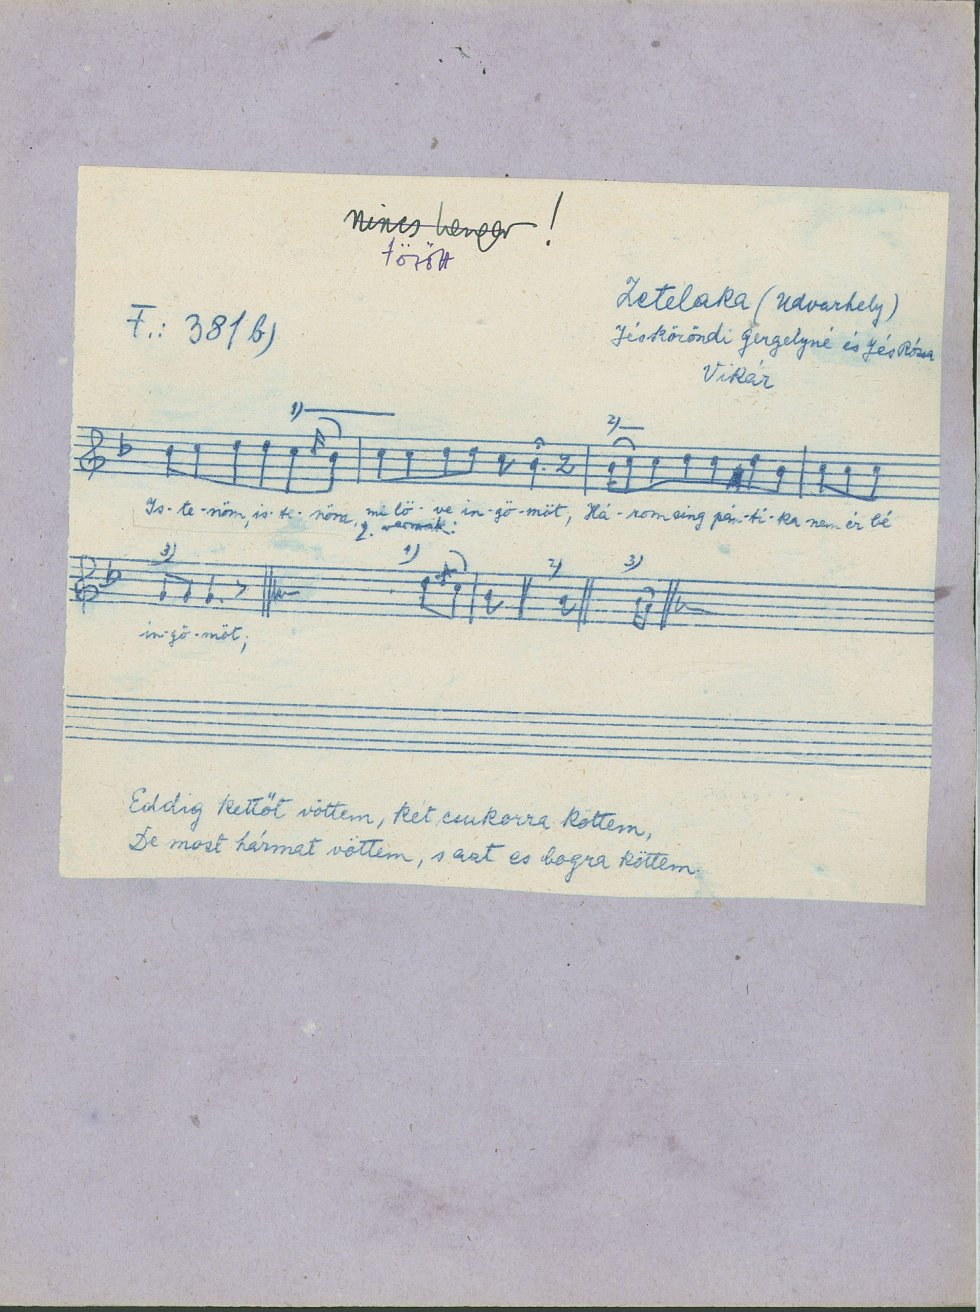 nincs henger !
törött
F.: 381 b)
Zetelaka (Udvarhely)
Gergelyné és
Vikár
1)
2)
Is-te-nöm, is-te-nöm, mi lö-ve in-gö-möt, Há-rom sing pán-ti-ka nem ér bé
2. versszak:
3) 1) 2) 3)
in-gö-möt;
Eddig kettőt vöttem, két csukorra köttem,
De most hármat vöttem, s azt es bogra köttem.